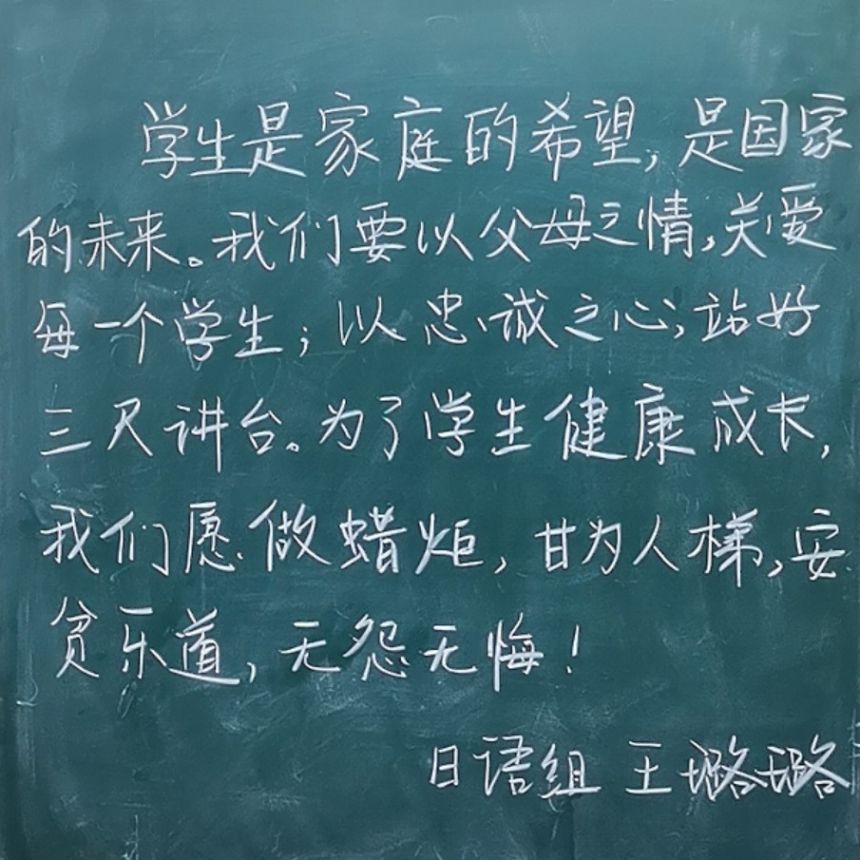 学生是家庭的希望,是因家
的未来。我们要以父母之情,关爱
每一个学生;以忠诚之心,站好
三尺讲台。为了学生健康成长,
我们愿做蜡炬,甘为人梯,安
贫乐道,无怨无悔!
日语组 王璐璐